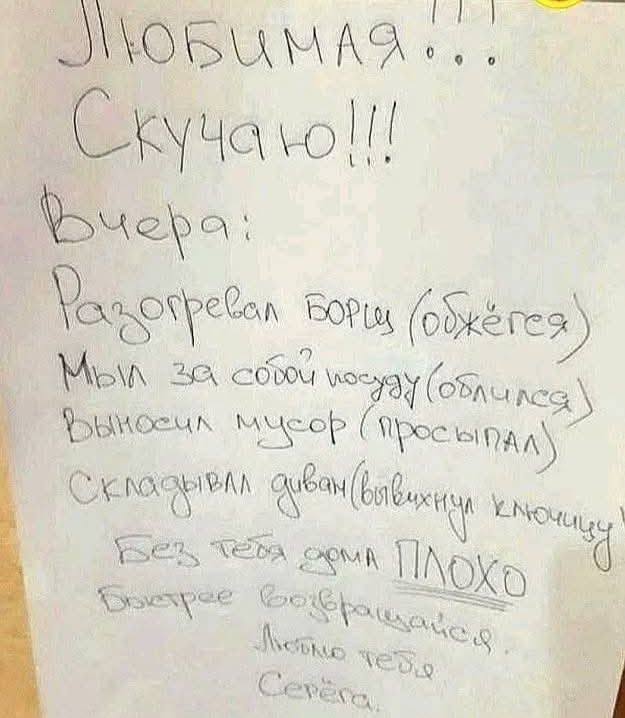 Любимая!!!
Скучаю!!!
Вчера:
Разогревал борщ (обжёгся)
Мыл за собой посуду (облился)
Выносил мусор (просыпал)
Складывал диван (вывихнул ключицу)
Без тебя дома ПЛОХО
Быстрее возвращайся.
Люблю тебя
Серёга.